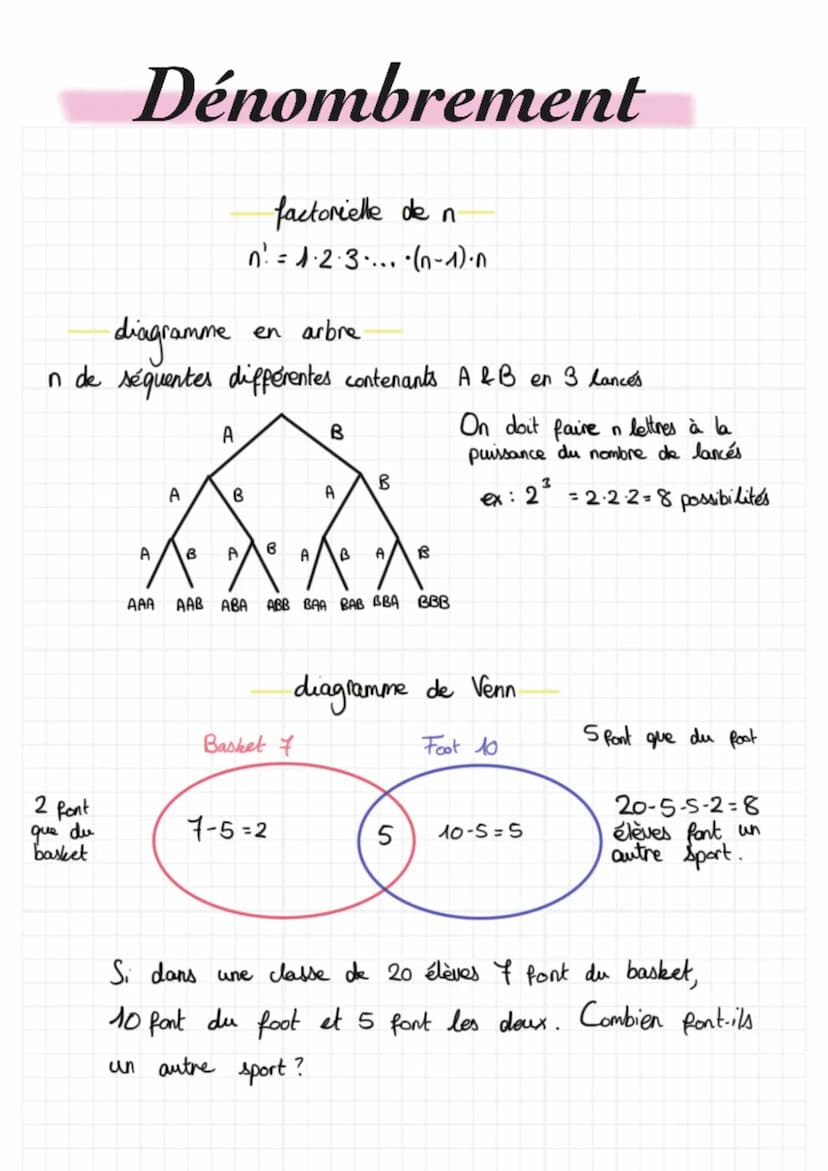 Dénombrement
factorielle de n
n! = 1·2·3·... ·(n-1)·n
diagramme en arbre
n de séquentes différentes contenants A & B en 3 lancés
A B
A B A B
A B A B A B A B
AAA AAB ABA ABB BAA BAB BBA BBB
On doit faire n lettres à la
puissance du nombre de lancés
ex : 2³ = 2·2·2 = 8 possibilités
diagramme de Venn
Basket 7
Foot 10
5 font que du foot
2 font
que du
basket
7-5=2
5
10-5=5
20-5-5-2=8
élèves font un
autre sport.
Si dans une classe de 20 élèves 7 font du basket,
10 font du foot et 5 font les deux. Combien font-ils
un autre sport ?